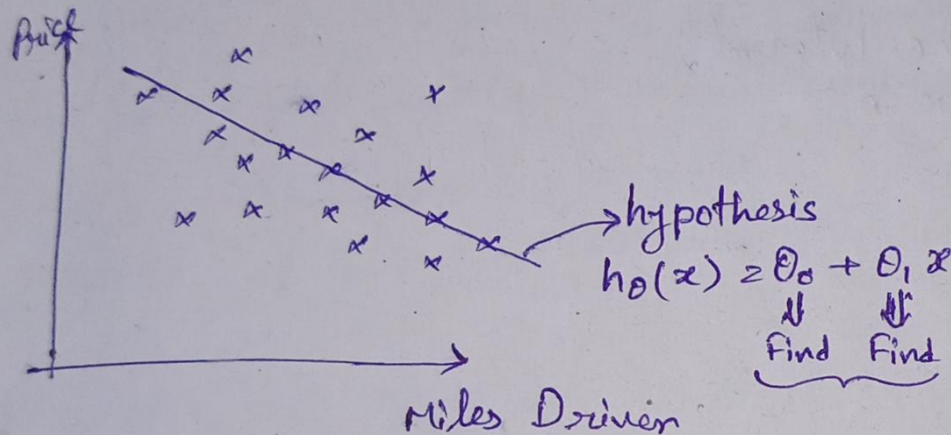 Price
hypothesis
hθ(x) = θ₀ + θ₁ x
Find Find
Miles Driven